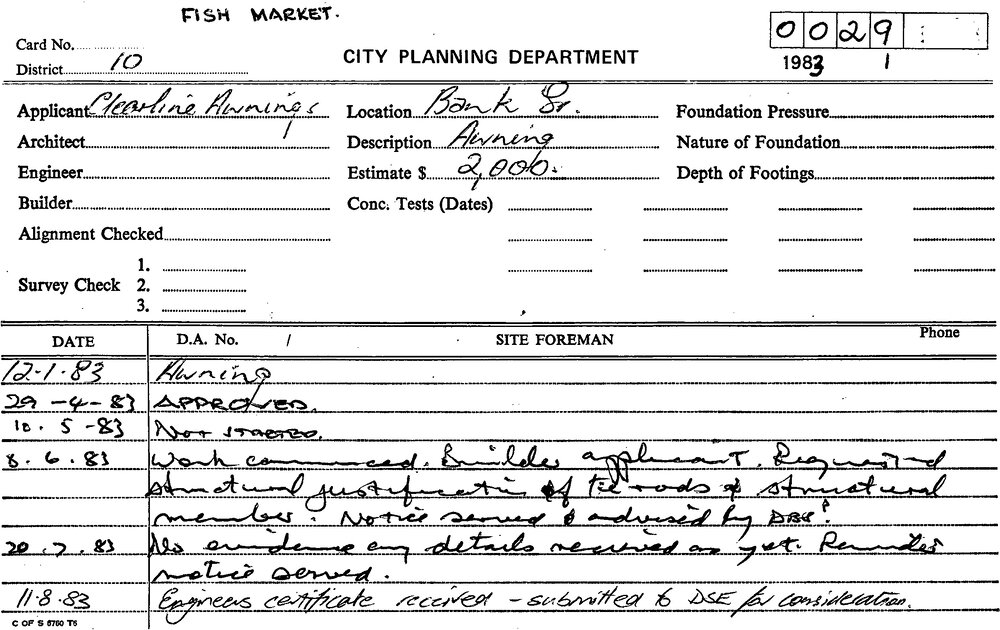 FISH MARKET.
0029
Card No.
District 10
CITY PLANNING DEPARTMENT
1983 1
Applicant Clearline Awnings
Location Bank St.
Foundation Pressure
Architect
Description Awning
Nature of Foundation
Engineer
Estimate $ 2,000.
Depth of Footings
Builder
Conc. Tests (Dates)
Alignment Checked
1.
Survey Check 2.
3.
DATE D.A. No. / SITE FOREMAN Phone
12.1.83 Awning
29-4-83 APPROVED.
10.5-83 NOT STARTED.
8.6.83 Work commenced. Builder applicant. Requested
structural justification of tie rods & structural
member. Notice served & advised by
20.7.83 No evidence any details received as yet. Reminder
notice served.
11.8.83 Engineers certificate received - submitted to DSE for consideration.
C OF S 6760 T5